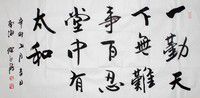 一勤天
下無難
事百忍
堂中有
太和